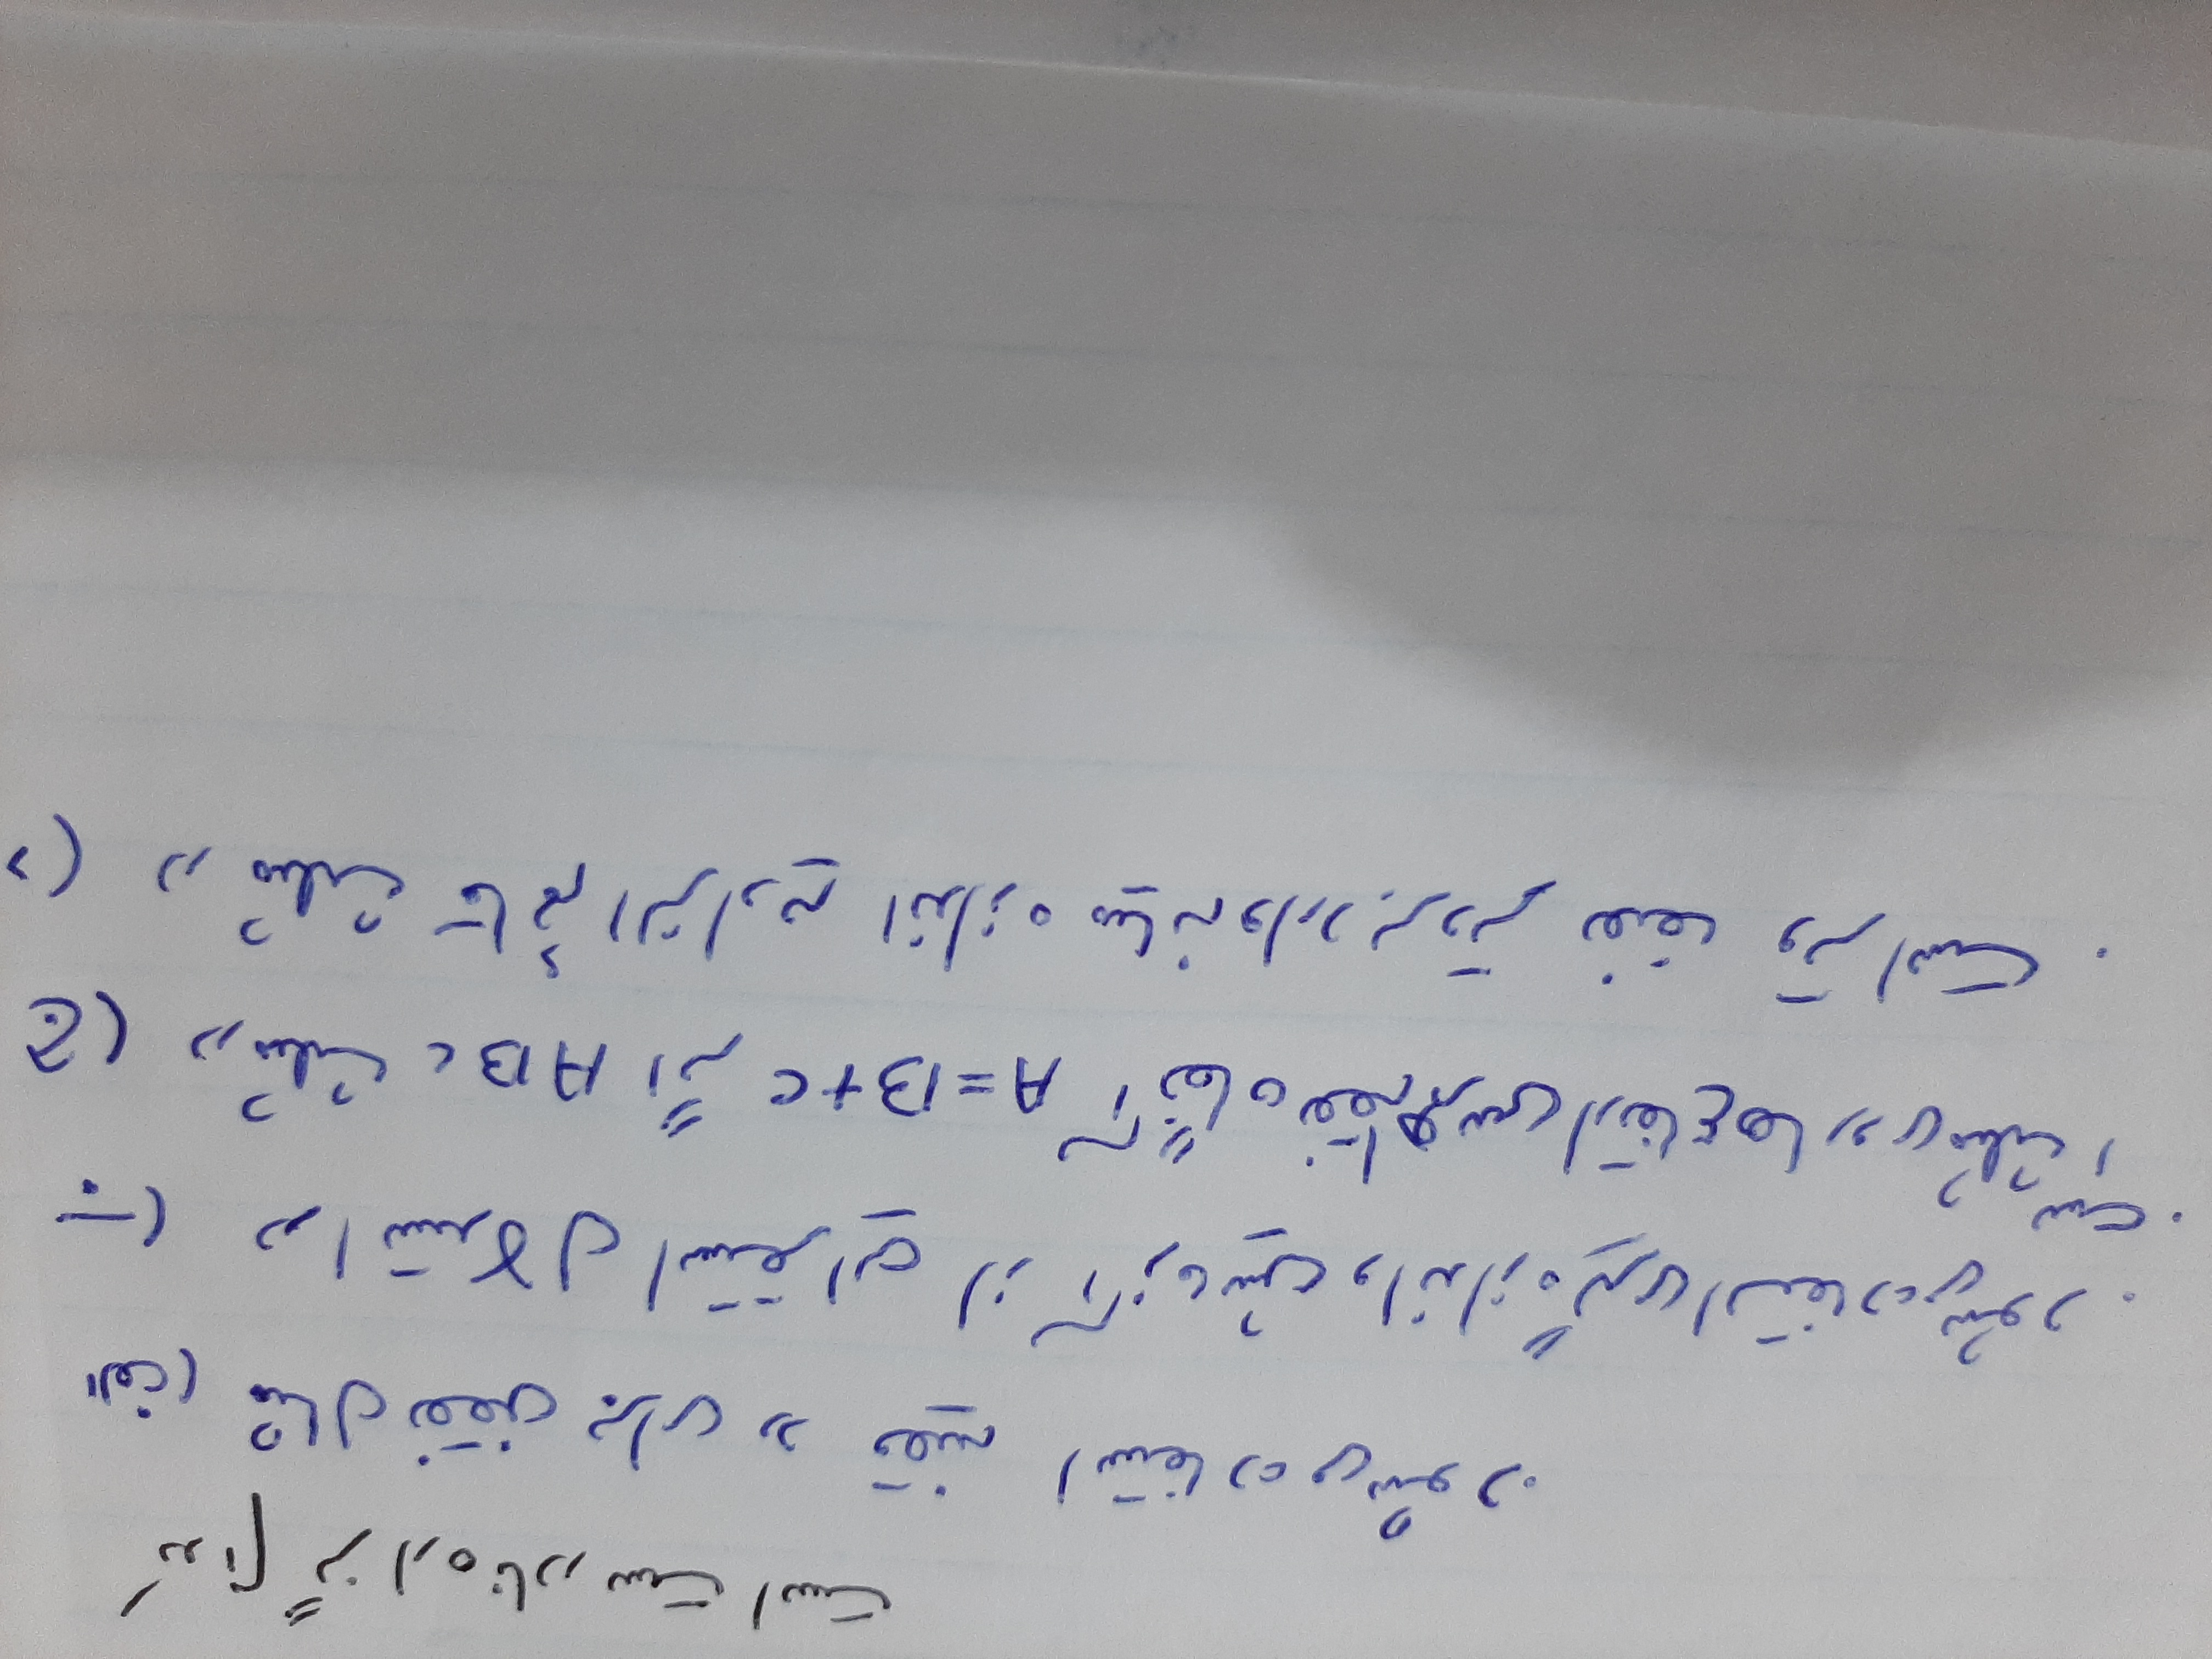 کدام گزاره نادرست است
الف) مثال نقض برای رد قضیه استفاده می‌شود.
ب) در استدلال استقرایی از آزمایش و اندازه‌گیری استفاده می‌شود.
ج) در مثلث ABC اگر A=B+C آنگاه نقطه همرسی ارتفاع‌ها روی مثلث است.
د) در مثلث قائم الزاویه اندازه میانه وارد بر وتر نصف وتر است.